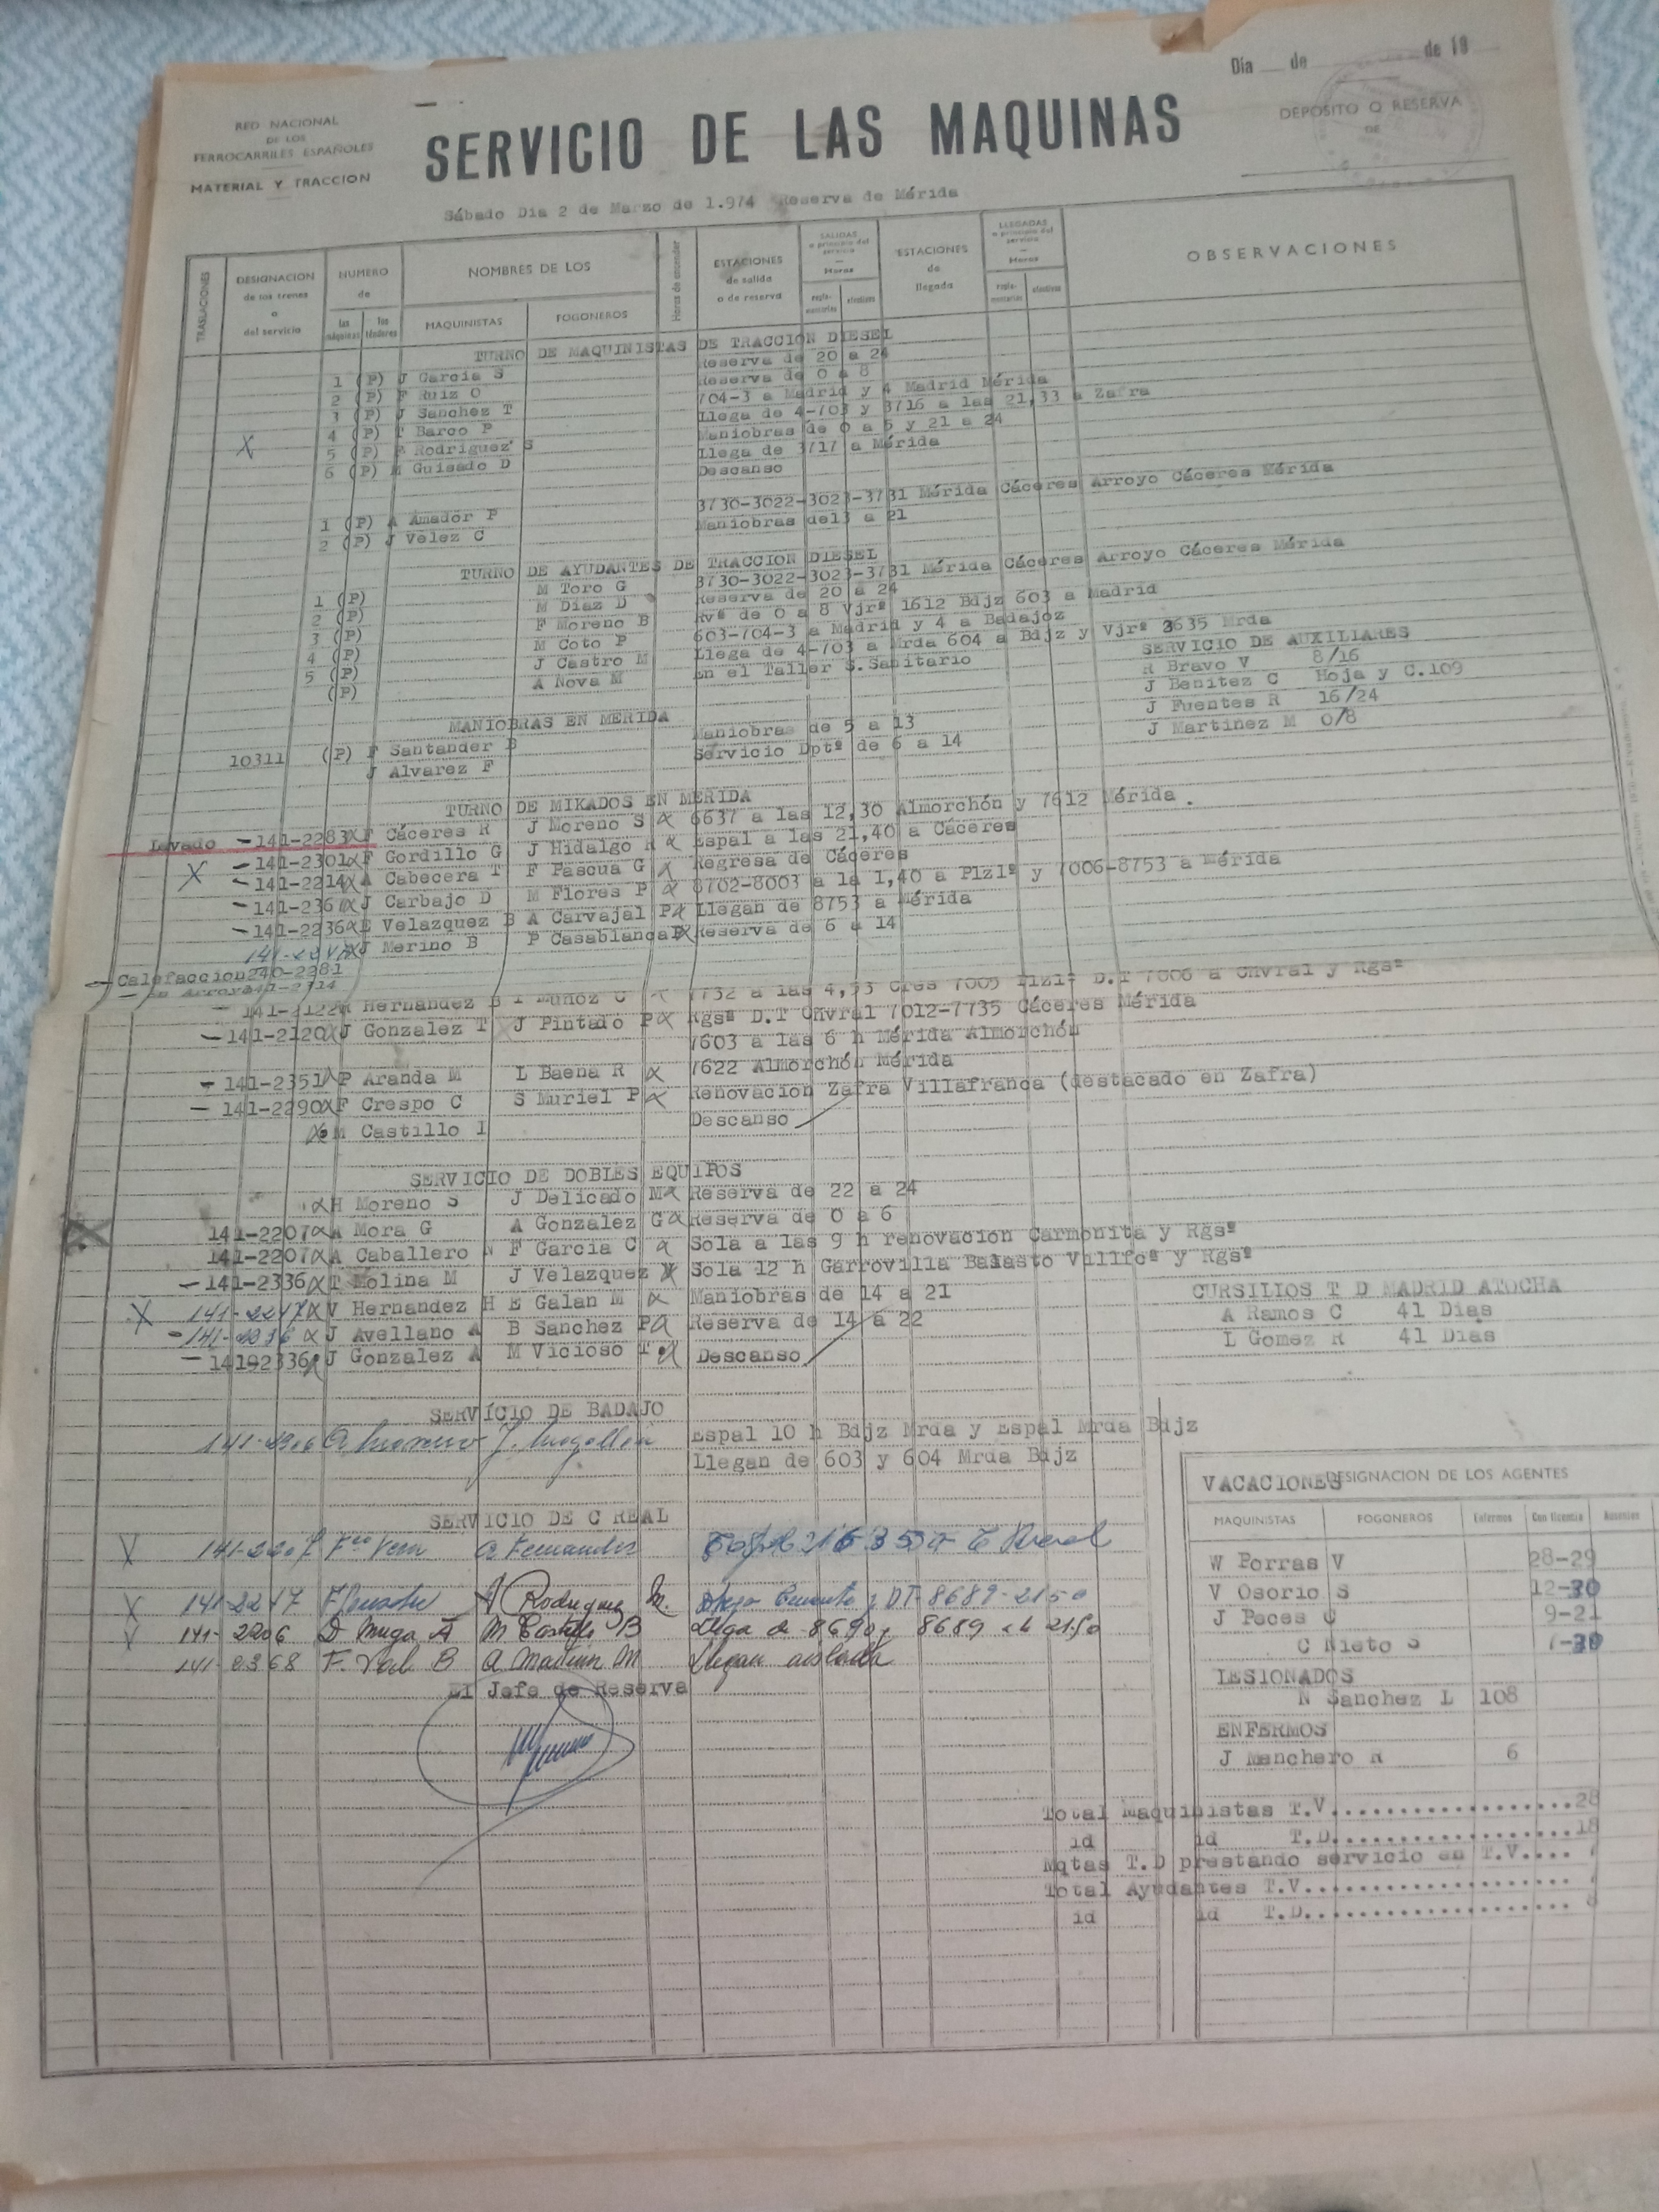 Día de de 19
RED NACIONAL
DE LOS
FERROCARRILES ESPAÑOLES
MATERIAL Y TRACCION
SERVICIO DE LAS MAQUINAS
DEPOSITO O RESERVA
DE
Sábado Dia 2 de Marzo de 1.974 Reserva de Mérida
TRASLACIONES
DESIGNACION
de los trenes
o
del servicio
NUMERO
de
las máquinas
los ténderes
NOMBRES DE LOS
MAQUINISTAS
FOGONEROS
Horas de encender
ESTACIONES
de salida
o de reserva
SALIDAS
o principio del
servicio
Horas
regla-
mentarias
efectivas
ESTACIONES
de
llegada
LLEGADAS
o principio del
servicio
Horas
regla-
mentarias
efectivas
OBSERVACIONES
TURNO DE MAQUINISTAS DE TRACCION DIESEL
1 (P) J García S Reserva de 20 a 24
2 (P) F Ruiz O Reserva de 0 a 8
3 (P) J Sanchez T 704-3 a Madrid y 4 Madrid Mérida
4 (P) T Barco P Llega de 4-703 y 3716 a las 21,33 a Zafra
X 5 (P) Rodriguez S Maniobras de 0 a 5 y 21 a 24
6 (P) M Guisado D Llega de 3717 a Mérida
Descanso
1 (P) A Amador P 3730-3022-3023-3731 Mérida Cáceres Arroyo Cáceres Mérida
2 (P) J Velez C Maniobras de13 a 21
TURNO DE AYUDANTES DE TRACCION DIESEL
1 (P) M Toro G 3730-3022-3023-3731 Mérida Cáceres Arroyo Cáceres Mérida
2 (P) M Diaz D Reserva de 20 a 24
3 (P) F Moreno B Rvª de 0 a 8 Vjrª 1612 Bdjz 603 a Madrid
4 (P) M Coto P 603-704-3 a Madrid y 4 a Badajoz
5 (P) J Castro M Llega de 4-703 a Mrda 604 a Bdjz y Vjrª 3635 Mrda
(P) A Nova M En el Taller S.Sanitario
SERVICIO DE AUXILIARES
R Bravo V 8/16
J Benitez C Hoja y C.109
J Fuentes R 16/24
J Martinez M 0/8
MANIOBRAS EN MERIDA
10311 (P) F Santander B Maniobras de 5 a 13
J Alvarez F Servicio Dptª de 6 a 14
TURNO DE MIKADOS EN MERIDA
Lavado -141-2283 F Cáceres R J Moreno S 6637 a las 12,30 Almorchón y 7612 Mérida.
-141-2301 F Gordillo G J Hidalgo R Espal a las 21,40 a Cáceres
X -141-2214 A Cabecera T F Pascua G Regresa de Cáceres
-141-236 J Carbajo D M Flores P 8702-8003 a la 1,40 a Plzlª y 7006-8753 a Mérida
-141-2236 E Velazquez B A Carvajal P Llegan de 8753 a Mérida
J Merino B P Casablanca Reserva de 6 a 14
Calefaccion240-2281
En Arroyo141-2314
141-2122 Hernandez B T Muñoz C 7732 a las 4,53 Cres 7005 Plzlª D.T 7006 a Cnvral y Rgsª
-141-2120 J Gonzalez T J Pintado P Rgsª D.T Cnvral 7012-7735 Cáceres Mérida
7603 a las 6 h Mérida Almorchón
-141-2351 P Aranda M L Baena R 7622 Almorchón Mérida
-141-2290 F Crespo C S Muriel P Renovacion Zafra Villafranca (destacado en Zafra)
M Castillo I Descanso
SERVICIO DE DOBLES EQUIPOS
H Moreno S J Delicado M Reserva de 22 a 24
X 141-2207 A Mora G A Gonzalez G Reserva de 0 a 6
141-2207 A Caballero N F García C Sola a las 9 h renovacion Carmonita y Rgsª
-141-2336 T Molina M J Velazquez Sola 12 h Garrovilla Balasto Villfcª y Rgsª
X 141-2247 V Hernandez H E Galan M Maniobras de 14 a 21
-141-2236 J Avellano A B Sanchez P Reserva de 14 a 22
-14192336 J Gonzalez A M Vicioso T Descanso
CURSILIOS T D MADRID ATOCHA
A Ramos C 41 Dias
L Gomez R 41 Dias
SERVICIO DE BADAJO
141-2306 Espal 10 h Bdjz Mrda y Espal Mrda Bdjz
Llegan de 603 y 604 Mrda Bdjz
SERVICIO DE C REAL
X 141-2207 Fco Vera A Fernandez C Real
X 141-2247 A Rodriguez M. Cemento y DT-8689-2150
141-2206 D Muga A M Castillo B Llega de 8690 y 8689 a la 21.50
141-2368 F. Val B A Martin M Llegan aislada
El Jefe de Reserva
VACACIONES
DESIGNACION DE LOS AGENTES
MAQUINISTAS FOGONEROS Enfermos Con licencia Ausentes
W Porras V 28-29
V Osorio S 12-30
J Peces 9-21
C Nieto S 1-30
LESIONADOS
N Sanchez L 108
ENFERMOS
J Manchero R 6
Total Maquinistas T.V..................28
id id T.D..................18
Mqtas T.D prestando servicio en T.V....
Total Ayudantes T.V..................
id id T.D..................